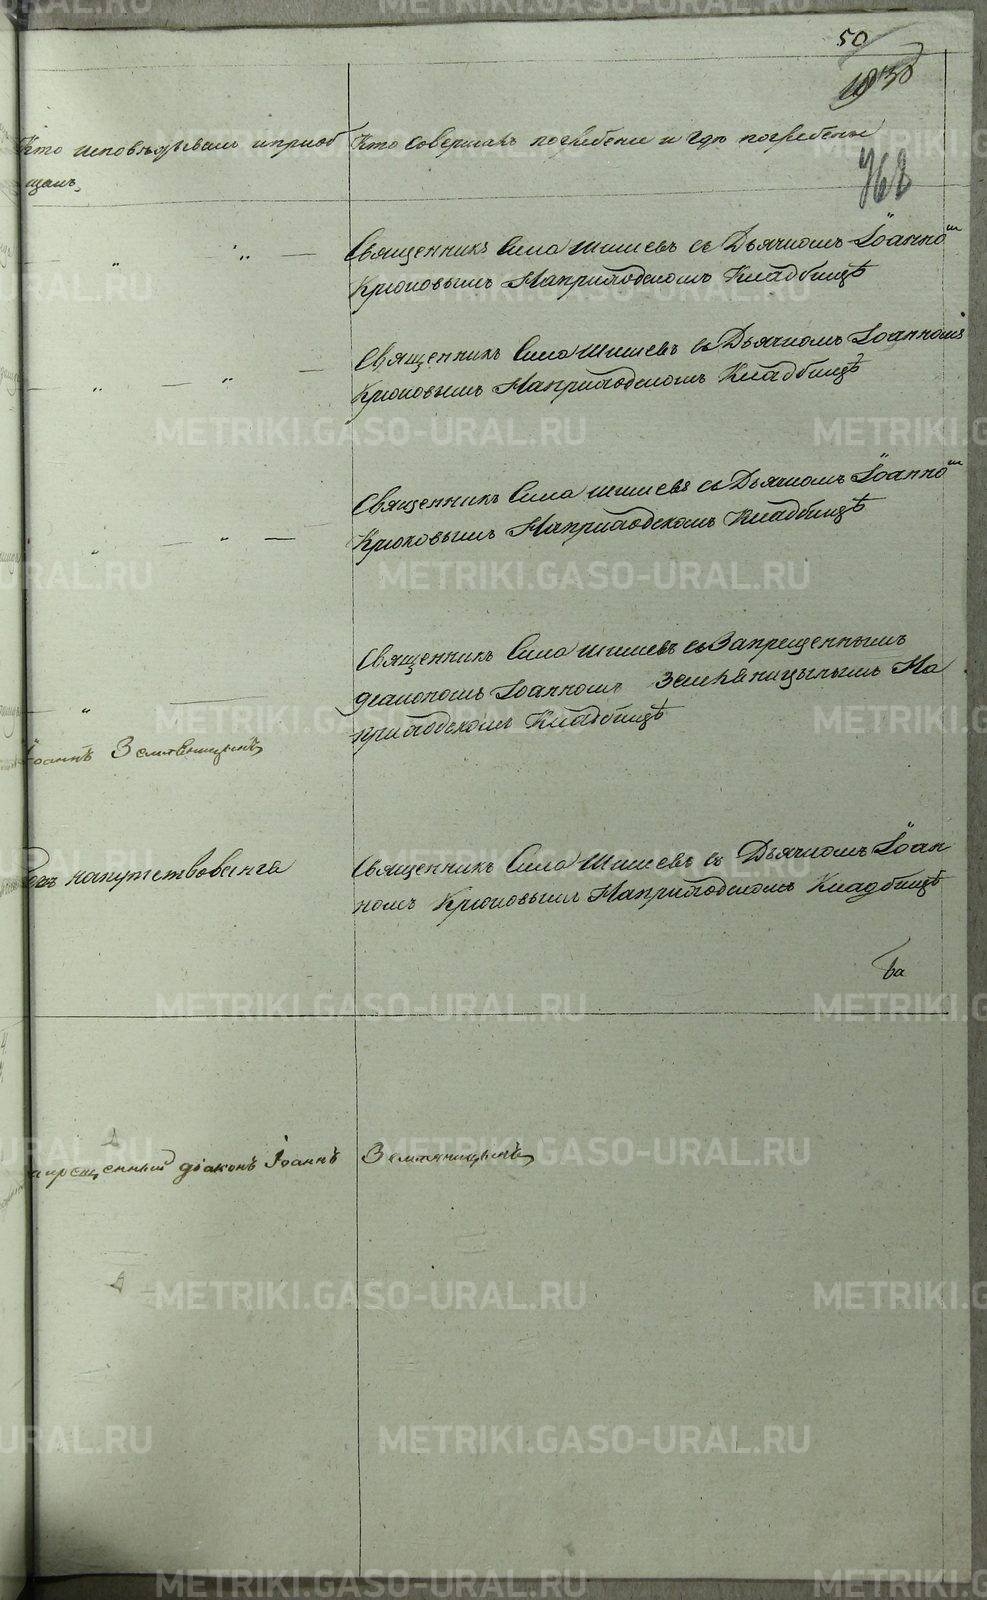 50
Кто исповѣдывалъ и приоб
щалъ.
Кто совершалъ погребение и гдѣ погребены
768
Священникъ Сила Шишевъ съ Дьячкомъ Іоанно м
Крюковымъ На приходскомъ Кладбищѣ
Священникъ Сила Шишевъ съ Дьячкомъ Іоанномъ
Крюковымъ На приходскомъ Кладбищѣ
Священникъ Сила Шишевъ съ Дьячкомъ Іоанно м
Крюковымъ На приходскомъ Кладбищѣ
Священникъ Сила Шишевъ съ Запрещеннымъ
діакономъ Іоанномъ Земляницынымъ На
приходскомъ Кладбищѣ
Іоаннъ Земляницынъ
Безъ напутствованія
Священникъ Сила Шишевъ съ Дьячкомъ Іоан
номъ Крюковымъ На приходскомъ Кладбищѣ
ва
апрещенный діаконъ Іоаннъ Земляницынъ
METRIKI.GASO-URAL.RU